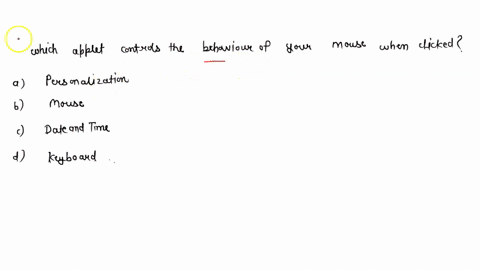 which applet controls the behaviour of your mouse when clicked?
a) Personalization
b) Mouse
c) Date and Time
d) Keyboard ..